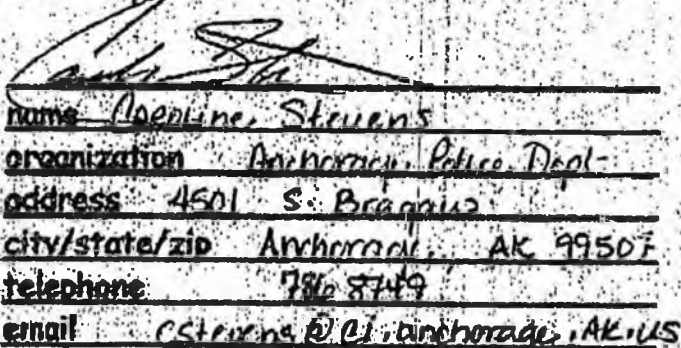 name Caroline Stevens
organization Anchorage Police Dept-
address 4501 S. Bragaw
city/state/zip Anchorage, AK 99507
telephone 786 8749
email cstevens@ci.anchorage.AK.US